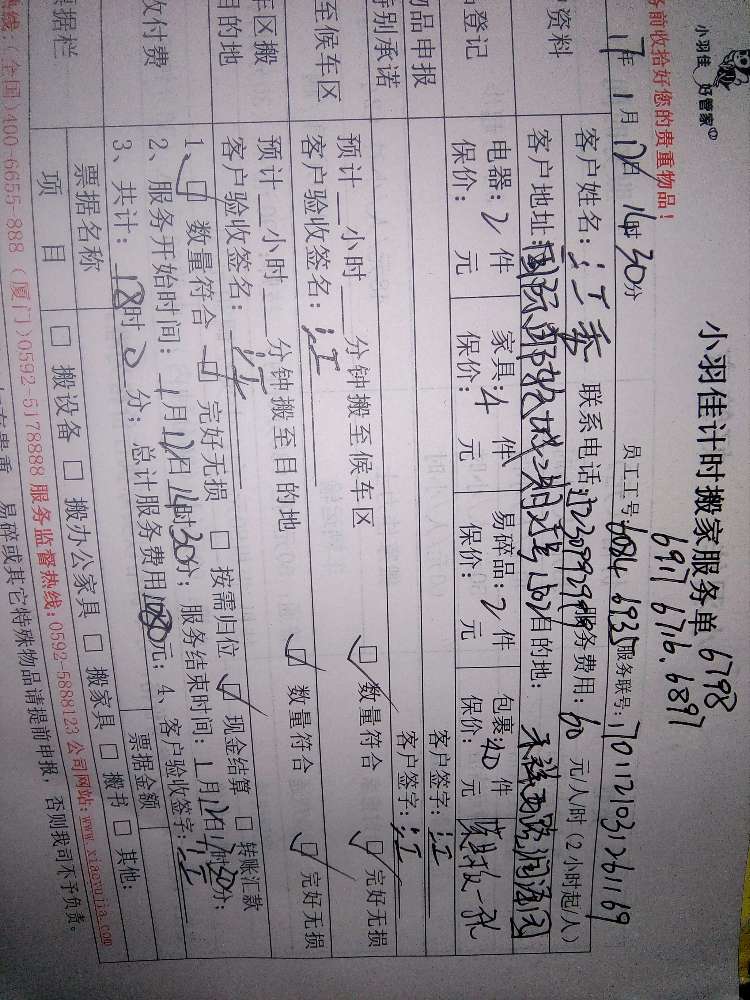 小羽佳 好管家
小羽佳计时搬家服务单
6798
6917 6716.6897
务前收拾好您的贵重物品!
17年1月12日14时30分
员工工号:6084 6935 服务联号:170112103126 1169
资料
客户姓名:江 联系电话: 服务费用:60元/人/时(2小时起/人)
客户地址: 目的地:
登记
电器:2件 家具:4件 易碎品:2件 包裹:40件
保价: 元 保价: 元 保价: 元 保价: 元
物品申报
客户签字:江
特别承诺
客户签字:江
至候车区
预计__小时__分钟搬至候车区 数量符合 完好无损
客户验收签名:江
车区搬
目的地
预计__小时__分钟搬至目的地 数量符合 完好无损
客户验收签名:江
收付费
1、 数量符合 完好无损 按需归位 现金结算 转账汇款
2、服务开始时间:1月12日14时30分;服务结束时间:1月12日17时30分;
3、共计:18时0分;总计服务费用1080元;4、客户验收签字:江
票据栏
票据名称 票据金额
项目 搬设备 搬办公家具 搬家具 搬书 其他:
热线:(全国)400-6655-888(厦门)0592-5178888 服务监督热线:0592-5888123 公司网站:www.xiaoyujia.com
易碎或其它特殊物品请提前申报,否则我司不予负责。